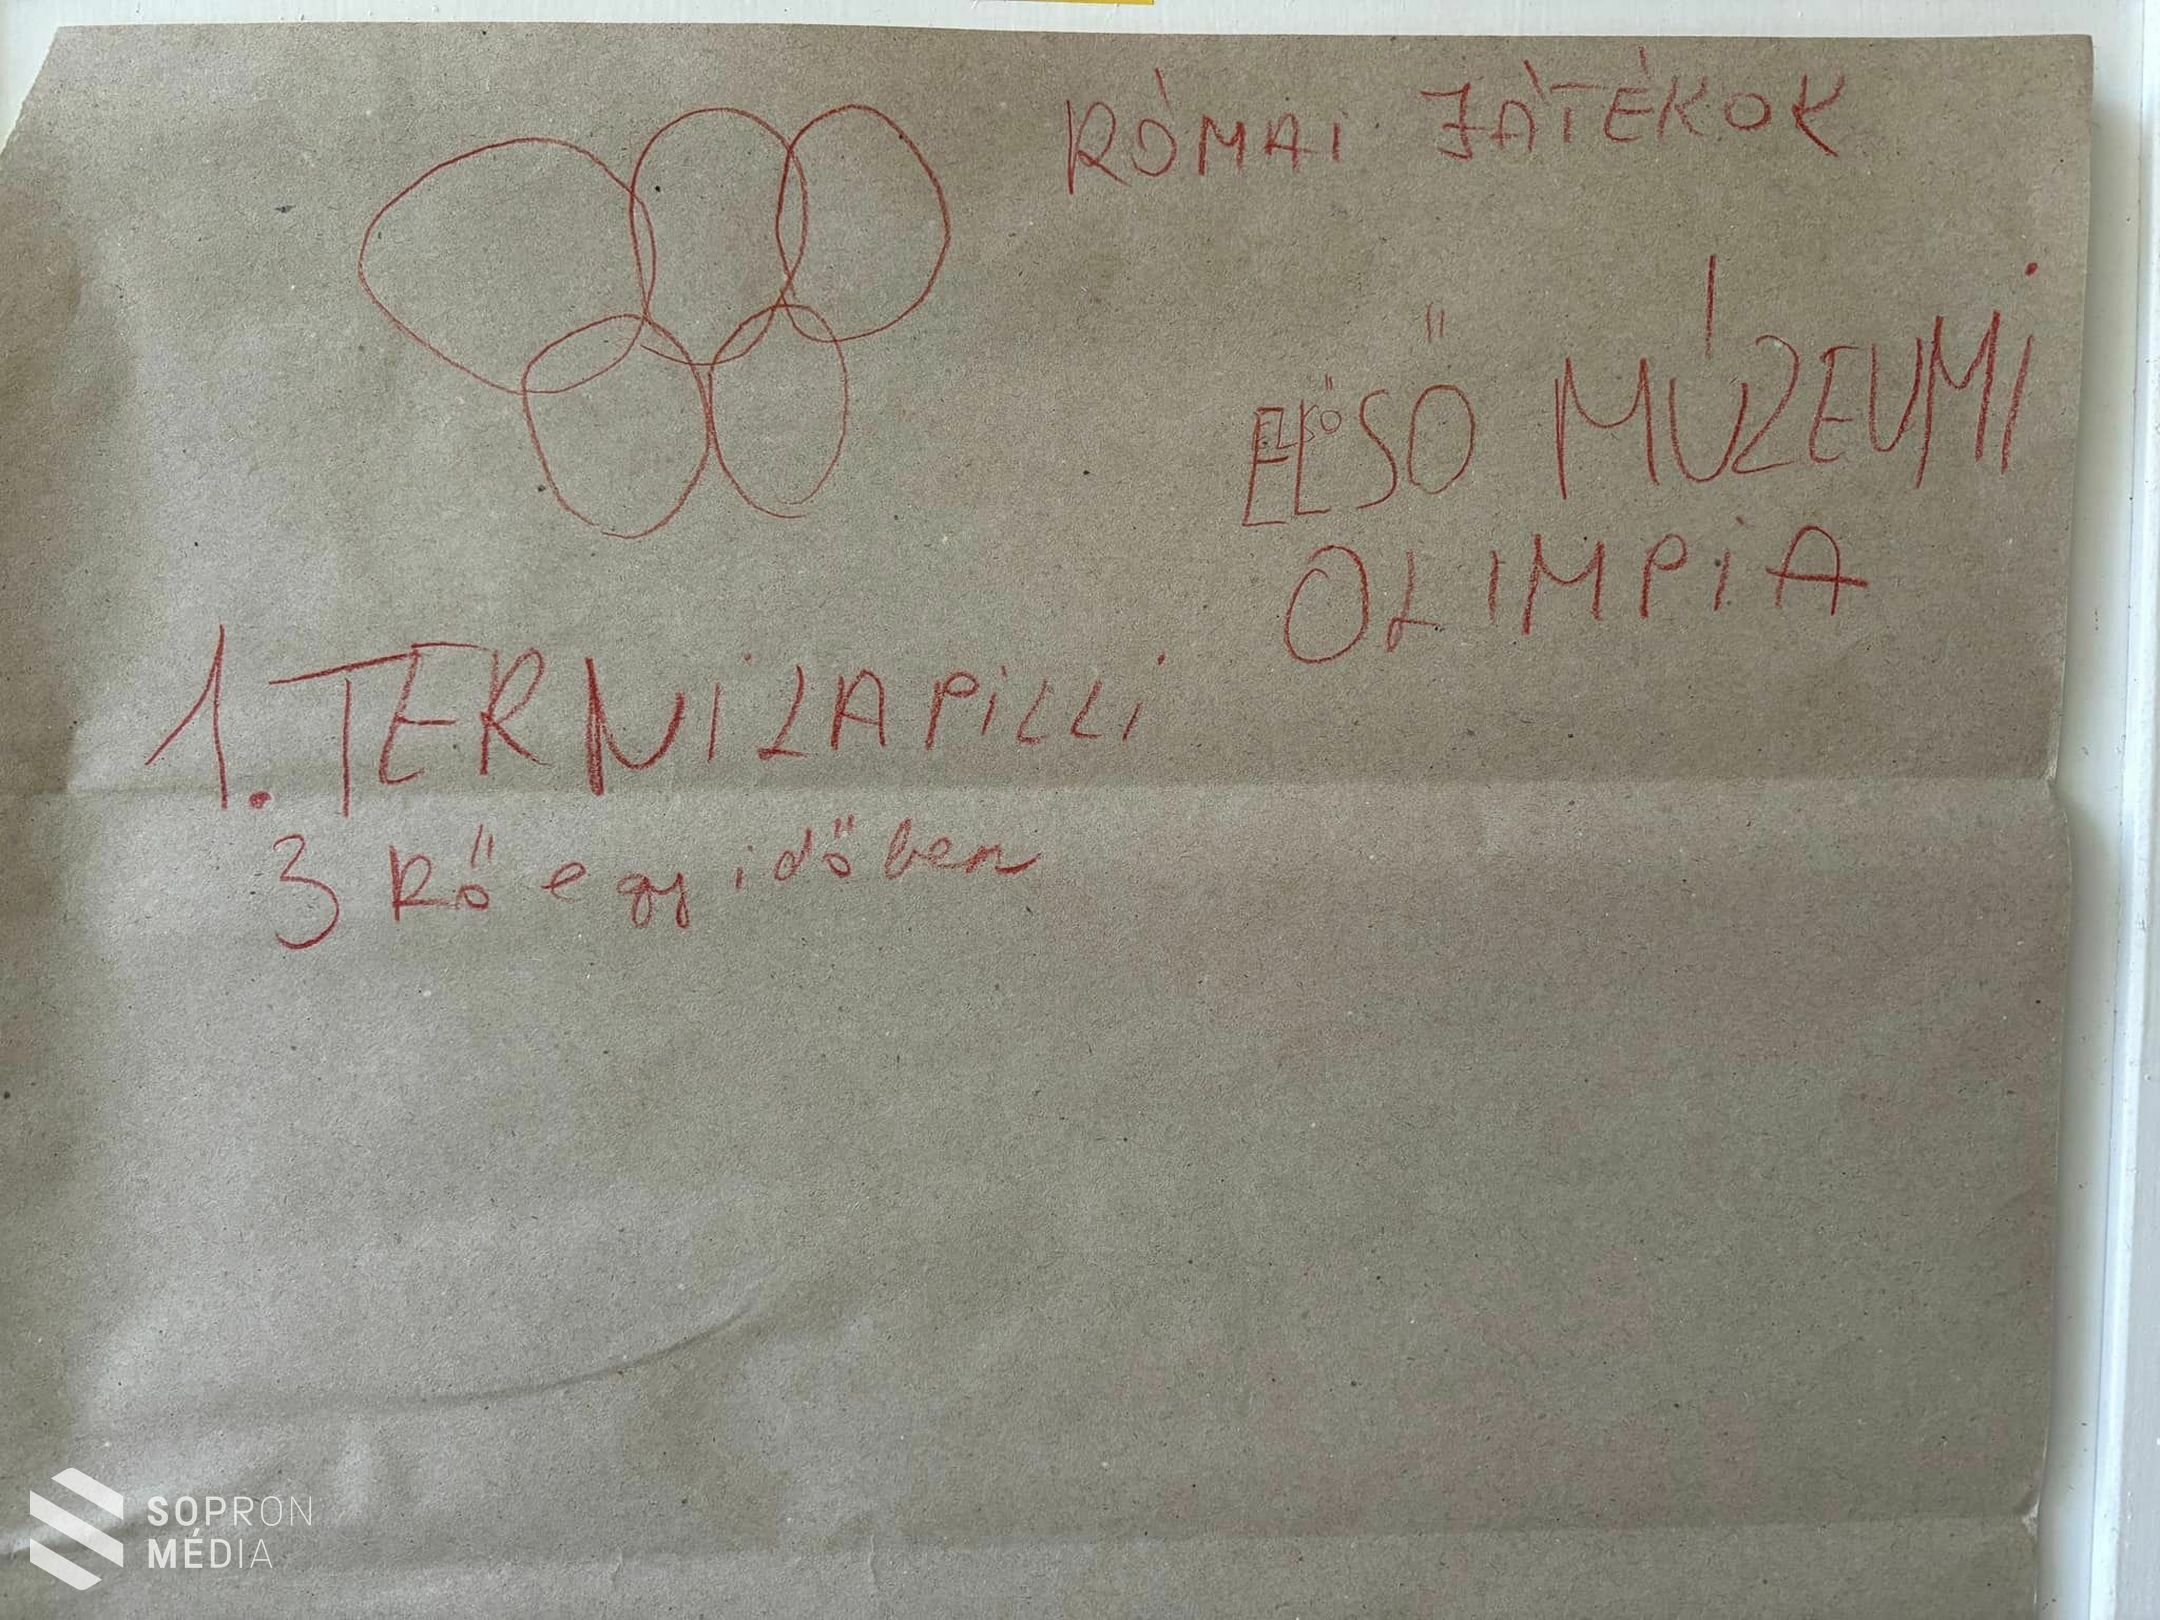 RÓMAI JÁTÉKOK
ELSŐ
ELSŐ MÚZEUMI
OLIMPIA
1. TERNI LAPILLI
3 kő egy időben
SOPRON
MÉDIA